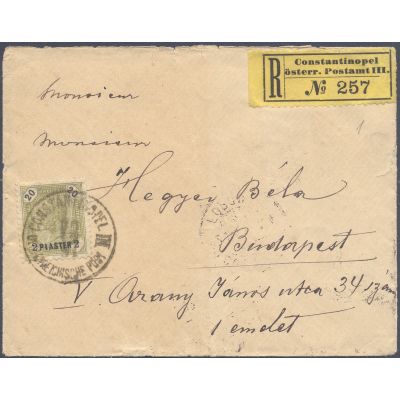 Constantinopel
österr. Postamt III.
R № 257
Monsieur
Monsieur
Hegyey Béla
Budapest
V Arany János utca 34 szám
1 emelet
20 20
2 PIASTER 2
III
1